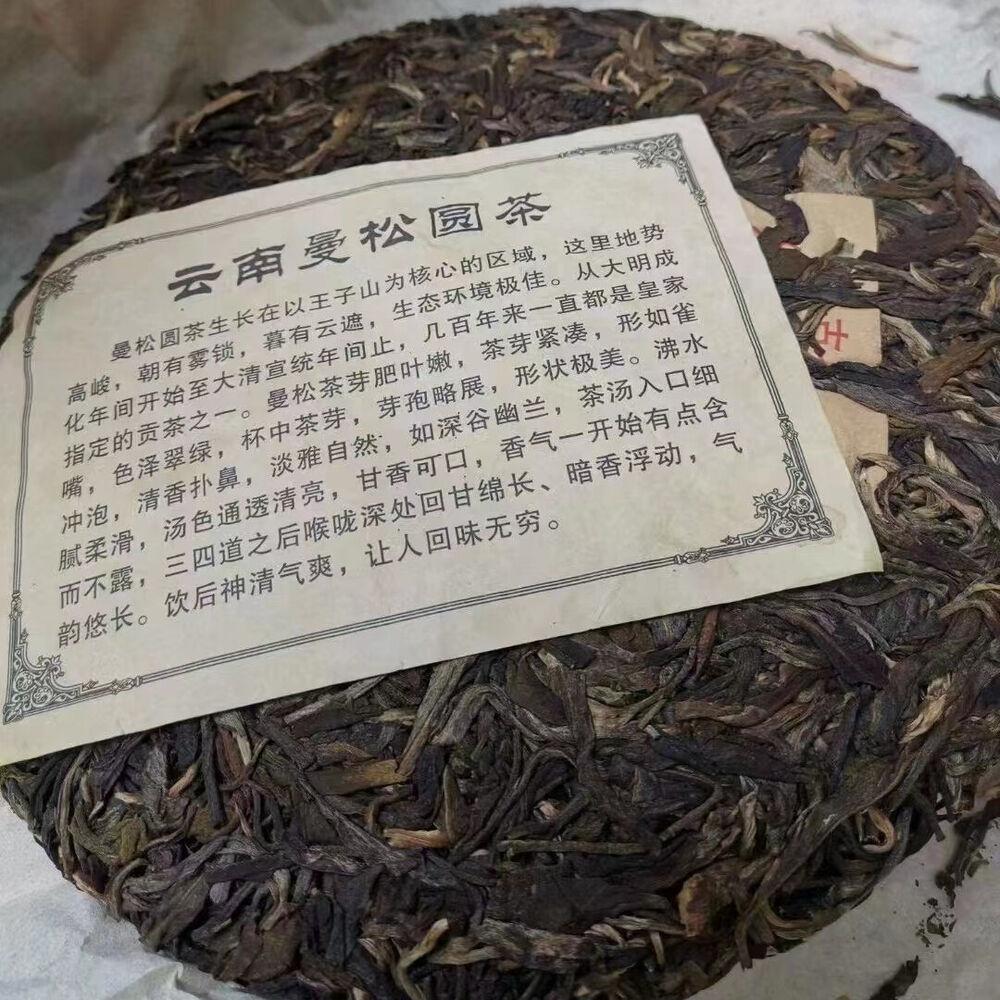 云南曼松圆茶
曼松圆茶生长在以王子山为核心的区域，这里地势
高峻，朝有雾锁，暮有云遮，生态环境极佳。从大明成
化年间开始至大清宣统年间止，几百年来一直都是皇家
指定的贡茶之一。曼松茶芽肥叶嫩，茶芽紧凑，形如雀
嘴，色泽翠绿，杯中茶芽，芽孢略展，形状极美。沸水
冲泡，清香扑鼻，淡雅自然，如深谷幽兰，茶汤入口细
腻柔滑，汤色通透清亮，甘香可口，香气一开始有点含
而不露，三四道之后喉咙深处回甘绵长、暗香浮动，气
韵悠长。饮后神清气爽，让人回味无穷。